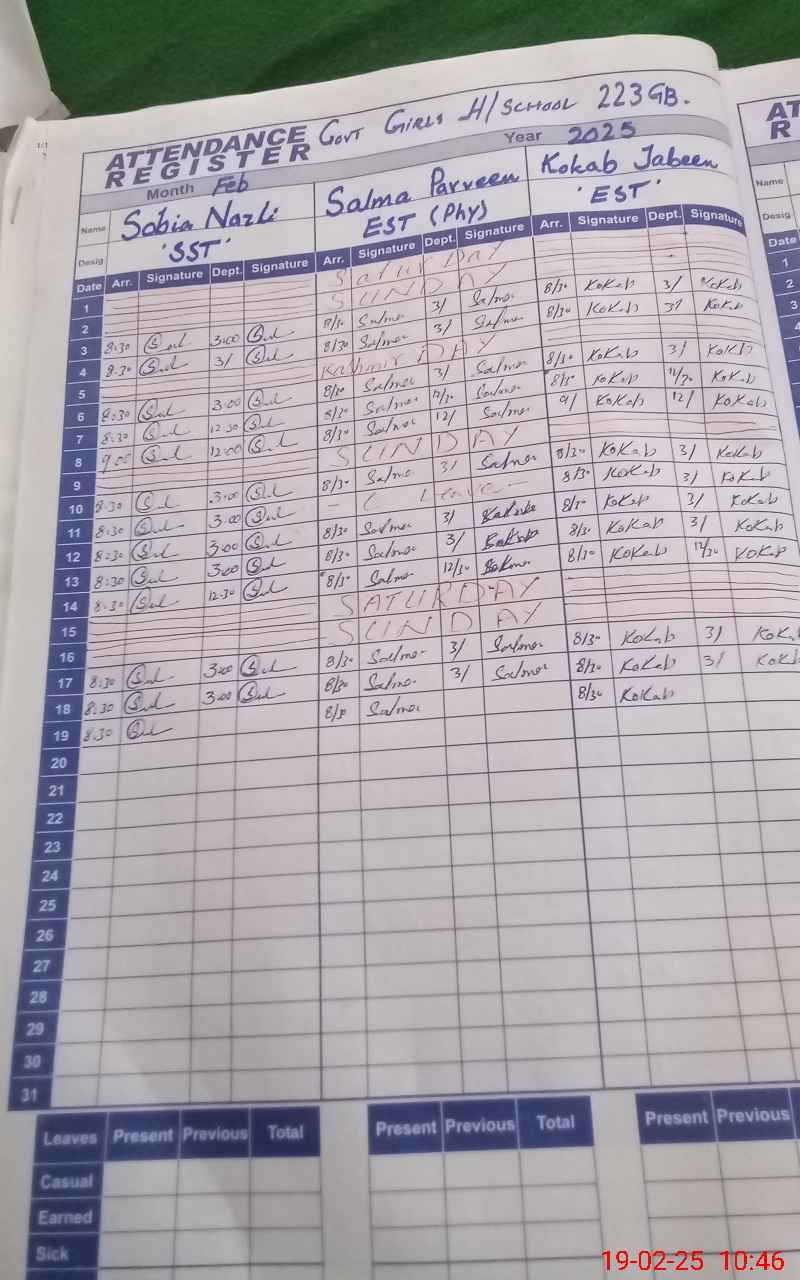 1/1
ATTENDANCE REGISTER GOVT GIRLS H/SCHOOL 223 GB.
Month Feb Year 2025
Name Sobia Nazli Salma Parveen Kokab Jabeen
Desig 'SST' EST (Phy) 'EST'
Date Arr. Signature Dept. Signature Arr. Signature Dept. Signature Arr. Signature Dept. Signature
1 Saturday
2 SUNDAY
3 8:30 3:00 8/30 Salma 3/ Salma 8/30 Kokab 3/ Kokab
4 8:30 3/ 8/30 Salma 3/ Salma 8/30 Kokab 3/ Kokab
5 Kashmir DAY
6 8:30 3:00 8/30 Salma 3/ Salma 8/30 Kokab 3/ Kokab
7 8:30 12:30 8/30 Salma 12/30 Salma 8/30 Kokab 12/30 Kokab
8 9:00 12:00 8/30 Salma 12/ Salma 9/ Kokab 12/ Kokab
9 SUNDAY
10 8:30 3:00 8/30 Salma 3/ Salma 8/30 Kokab 3/ Kokab
11 8:30 3:00 — C Leave — 8/30 Kokab 3/ Kokab
12 8:30 3:00 8/30 Salma 3/ 8/30 Kokab 3/ Kokab
13 8:30 3:00 8/30 Salma 3/ 8/30 Kokab 3/ Kokab
14 8:30 12:30 8/30 Salma 12/30 Salma 8/30 Kokab 12/30 Kokab
15 SATURDAY
16 SUNDAY
17 8:30 3:00 8/30 Salma 3/ Salma 8/30 Kokab 3/ Kokab
18 8:30 3:00 8/30 Salma 3/ Salma 8/30 Kokab 3/ Kokab
19 8:30 8/30 Salma 8/30 Kokab
20
21
22
23
24
25
26
27
28
29
30
31
Leaves Present Previous Total Present Previous Total Present Previous
Casual
Earned
Sick
AT
R
Name
Desig
Date
1
2
3
4
19-02-25 10:46